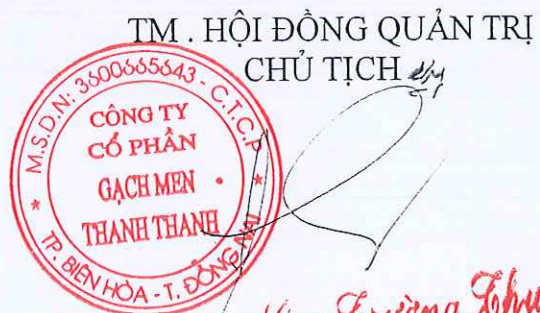 TM . HỘI ĐỒNG QUẢN TRỊ
CHỦ TỊCH
M.S.D.N: 3600665643 - C.T.C.P
CÔNG TY
CỔ PHẦN
GẠCH MEN
THANH THANH
TP. BIÊN HÒA - T. ĐỒNG NAI